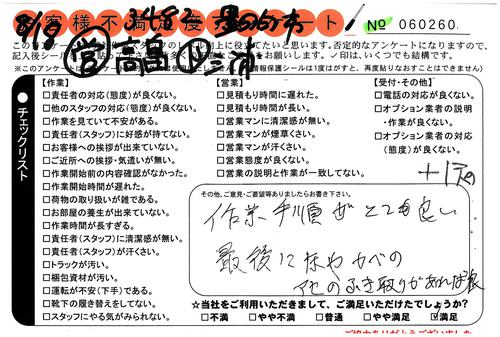 お客様不満足度アンケート
8/8
No 060260
営 高畠
記入後シール
お願いします。✓印は、いくつでも結構です。
●チェックリスト
【作業】
□責任者の対応(態度)が良くない。
□他のスタッフの対応(態度)が良くない。
□作業を見ていて不安がある。
□責任者(スタッフ)に好感が持てない。
□お客様への挨拶が出来ていない。
□ご近所への挨拶・気遣いが無い。
□作業開始前の内容確認がなかった。
□作業開始時間が遅れた。
□荷物の取り扱いが雑である。
□お部屋の養生が出来ていない。
□作業時間が長すぎる。
□責任者(スタッフ)に清潔感が無い。
□責任者(スタッフ)が汗くさい。
□トラックが汚い。
□梱包資材が汚い。
□運転が不安(下手)である。
□靴下の履き替えをしてない。
□スタッフにやる気がみられない。
【営業】
□見積もり時間に遅れた。
□見積もり時間が長い。
□営業マンに清潔感が無い。
□営業マンが煙草くさい。
□営業マンが汗くさい。
□営業態度が良くない。
□営業の説明と作業が一致してない。
【受付・その他】
□電話の対応が良くない。
□オプション業者の説明
・作業が良くない。
□オプション業者の対応
(態度)が良くない。
その他、ご意見・ご要望等ありましたらお書き下さい。
作業手順がとても良い
最後に床やカベの
アセのふき取りがあれば
☆当社をご利用いただきまして、ご満足いただけたでしょうか?
□不満 □やや不満 □普通 □やや満足 ☑満足
ご協力ありがとうございました